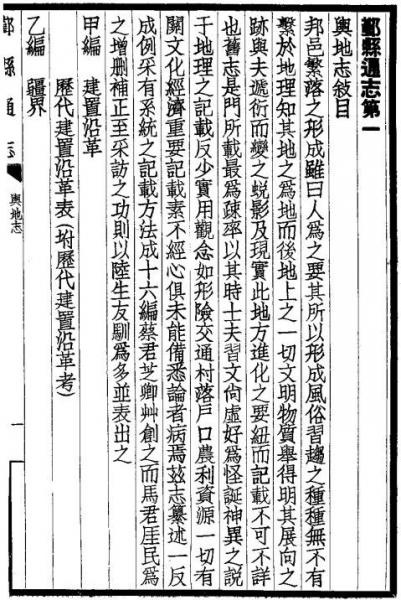 鄞縣通志第一
輿地志敘目
邦邑繁落之形成雖曰人爲之要其所以形成風俗習趨之種種無不有
繫於地理知其地之爲地而後地上之一切文明物質舉得明其展向之
跡與夫遞衍而變之蜕影及現實此地方進化之要紐而記載不可不詳
也舊志是門所載最爲疎率以其時士夫習文尙虛好爲怪誕神異之說
于地理之記載反少實用觀念如形險交通村落戶口農利資源一切有
關文化經濟重要記載素不經心俱未能備悉論者病焉茲志纂述一反
成例采有系統之記載方法成十六編蔡君芝卿艸創之而馬君厓民爲
之增删補正至采訪之功則以陸生友馴爲多並表出之
甲編　建置沿革
歷代建置沿革表(坿歷代建置沿革考)
乙編　疆界
鄞縣通志
輿地志
一